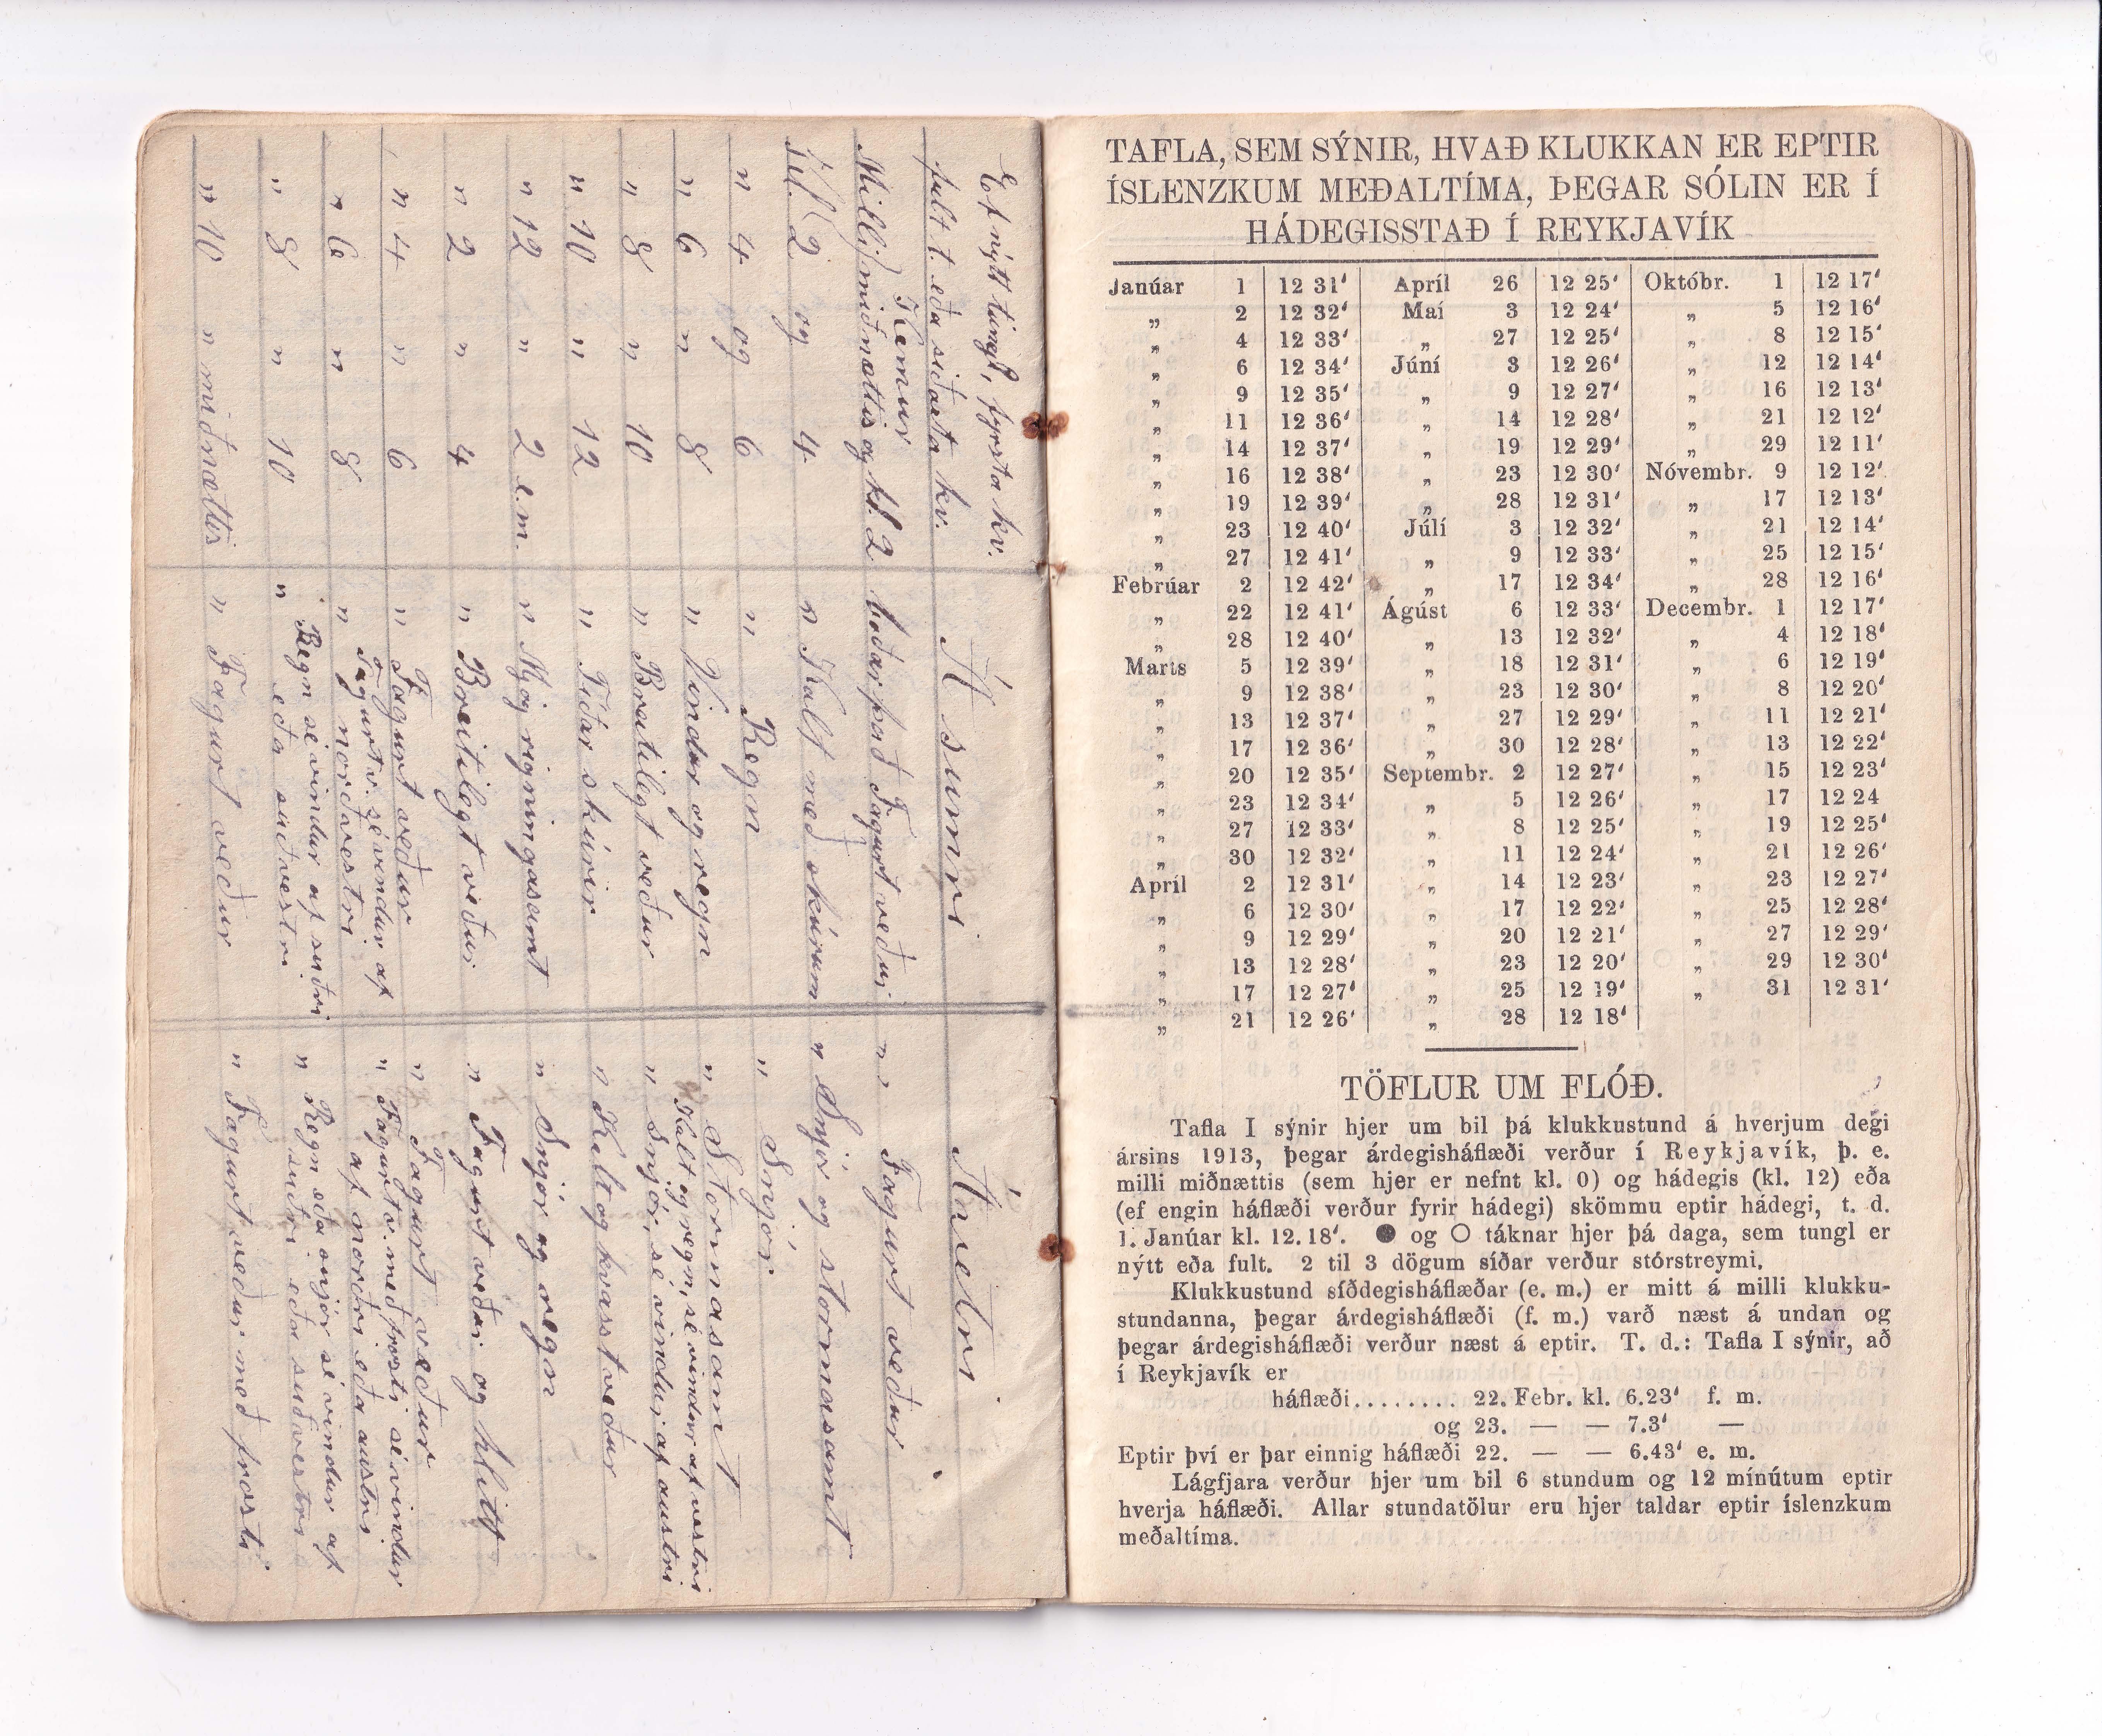 Ef nýtt tungl, fyrsta kv.
fult t. eða síðasta kv. Á sumri Á vetri
Kemur
Milli miðnættis og kl. 2 boðar það Fagurt veður " " Fagurt veður
kl. 2 og 4 " Kalt með skúrum " Snjór og stormasamt
" 4 og 6 " Regn " Snjór
" 6 " 8 " Vindur og regn " Stormasamt
Kalt og regn, sé vindur af vestri
" 8 " 10 " Breitilegt veður " Snjór, sé vindur af austri
" 10 " 12 " Tíðar skúrir " Kalt og kvasst veður
" 12 " 2 e.m. " Mjög rigningasamt " Snjór og regn
" 2 " 4 " Breitilegt veður " Fagurt veður og hlitt
" 4 " 6 " Fagurt veður " Fagurt veður
" 6 " 8 " Fagurt v. sé vindur af " Fagurt v. með frosti sé vindur
norðvestri af norðri eða austri
" 8 " 10 " Regn sé vindur af suðri " Regn eða snjór sé vindur af
eða suðvestri suðri eða suðvestri
" 10 " miðnættis " Fagurt veður " Fagurt veður með frosti
TAFLA, SEM SÝNIR, HVAÐ KLUKKAN ER EPTIR
ÍSLENZKUM MEÐALTÍMA, ÞEGAR SÓLIN ER Í
HÁDEGISSTAÐ Í REYKJAVÍK
Janúar 1 12 31‘ Apríl 26 12 25‘ Októbr. 1 12 17‘
„ 2 12 32‘ Maí 3 12 24‘ „ 5 12 16‘
„ 4 12 33‘ „ 27 12 25‘ „ 8 12 15‘
„ 6 12 34‘ Júní 3 12 26‘ „ 12 12 14‘
„ 9 12 35‘ „ 9 12 27‘ „ 16 12 13‘
„ 11 12 36‘ „ 14 12 28‘ „ 21 12 12‘
„ 14 12 37‘ „ 19 12 29‘ „ 29 12 11‘
„ 16 12 38‘ „ 23 12 30‘ Nóvembr. 9 12 12‘
„ 19 12 39‘ „ 28 12 31‘ „ 17 12 13‘
„ 23 12 40‘ Júlí 3 12 32‘ „ 21 12 14‘
„ 27 12 41‘ „ 9 12 33‘ „ 25 12 15‘
Febrúar 2 12 42‘ „ 17 12 34‘ „ 28 12 16‘
„ 22 12 41‘ Ágúst 6 12 33‘ Decembr. 1 12 17‘
„ 28 12 40‘ „ 13 12 32‘ „ 4 12 18‘
Marts 5 12 39‘ „ 18 12 31‘ „ 6 12 19‘
„ 9 12 38‘ „ 23 12 30‘ „ 8 12 20‘
„ 13 12 37‘ „ 27 12 29‘ „ 11 12 21‘
„ 17 12 36‘ „ 30 12 28‘ „ 13 12 22‘
„ 20 12 35‘ Septembr. 2 12 27‘ „ 15 12 23‘
„ 23 12 34‘ „ 5 12 26‘ „ 17 12 24
„ 27 12 33‘ „ 8 12 25‘ „ 19 12 25‘
„ 30 12 32‘ „ 11 12 24‘ „ 21 12 26‘
Apríl 2 12 31‘ „ 14 12 23‘ „ 23 12 27‘
„ 6 12 30‘ „ 17 12 22‘ „ 25 12 28‘
„ 9 12 29‘ „ 20 12 21‘ „ 27 12 29‘
„ 13 12 28‘ „ 23 12 20‘ „ 29 12 30‘
„ 17 12 27‘ „ 25 12 19‘ „ 31 12 31‘
„ 21 12 26‘ „ 28 12 18‘
TÖFLUR UM FLÓÐ.
Tafla I sýnir hjer um bil þá klukkustund á hverjum degi
ársins 1913, þegar árdegisháflæði verður í Reykjavík, þ. e.
milli miðnættis (sem hjer er nefnt kl. 0) og hádegis (kl. 12) eða
(ef engin háflæði verður fyrir hádegi) skömmu eptir hádegi, t. d.
1. Janúar kl. 12.18‘. ● og ○ táknar hjer þá daga, sem tungl er
nýtt eða fult. 2 til 3 dögum síðar verður stórstreymi.
Klukkustund síðdegisháflæðar (e. m.) er mitt á milli klukku-
stundanna, þegar árdegisháflæði (f. m.) varð næst á undan og
þegar árdegisháflæði verður næst á eptir. T. d.: Tafla I sýnir, að
í Reykjavík er
háflæði........ 22. Febr. kl. 6.23‘ f. m.
og 23. — — 7.3‘ —
Eptir því er þar einnig háflæði 22. — — 6.43‘ e. m.
Lágfjara verður hjer um bil 6 stundum og 12 mínútum eptir
hverja háflæði. Allar stundatölur eru hjer taldar eptir íslenzkum
meðaltíma.